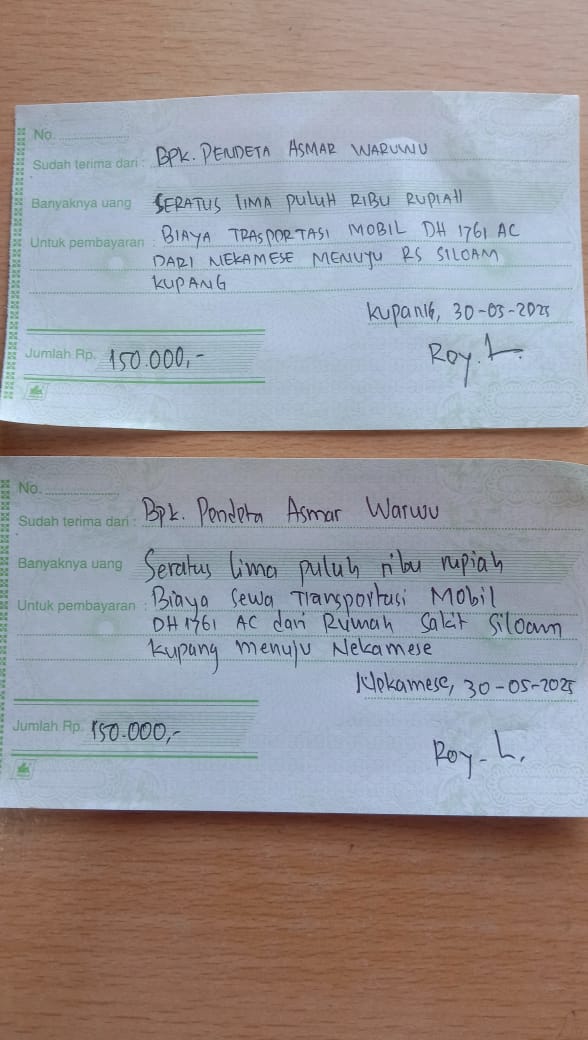 No. ....................
Sudah terima dari : BPK. PENDETA ASMAR WARUWU
Banyaknya uang SERATUS LIMA PULUH RIBU RUPIAH
Untuk pembayaran : BIAYA TRASPORTASI MOBIL DH 1761 AC
DARI NEKAMESE MENUJU RS SILOAM
KUPANG
Kupang, 30-05-2025
Jumlah Rp. 150.000,-
Roy. L.
No. ....................
Sudah terima dari : Bpk. Pendeta Asmar Waruwu
Banyaknya uang Seratus lima puluh ribu rupiah
Untuk pembayaran : Biaya Sewa Transportasi Mobil
DH 1761 AC dari Rumah Sakit Siloam
Kupang menuju Nekamese
Nekamese, 30-05-2025
Jumlah Rp. 150.000,-
Roy. L.